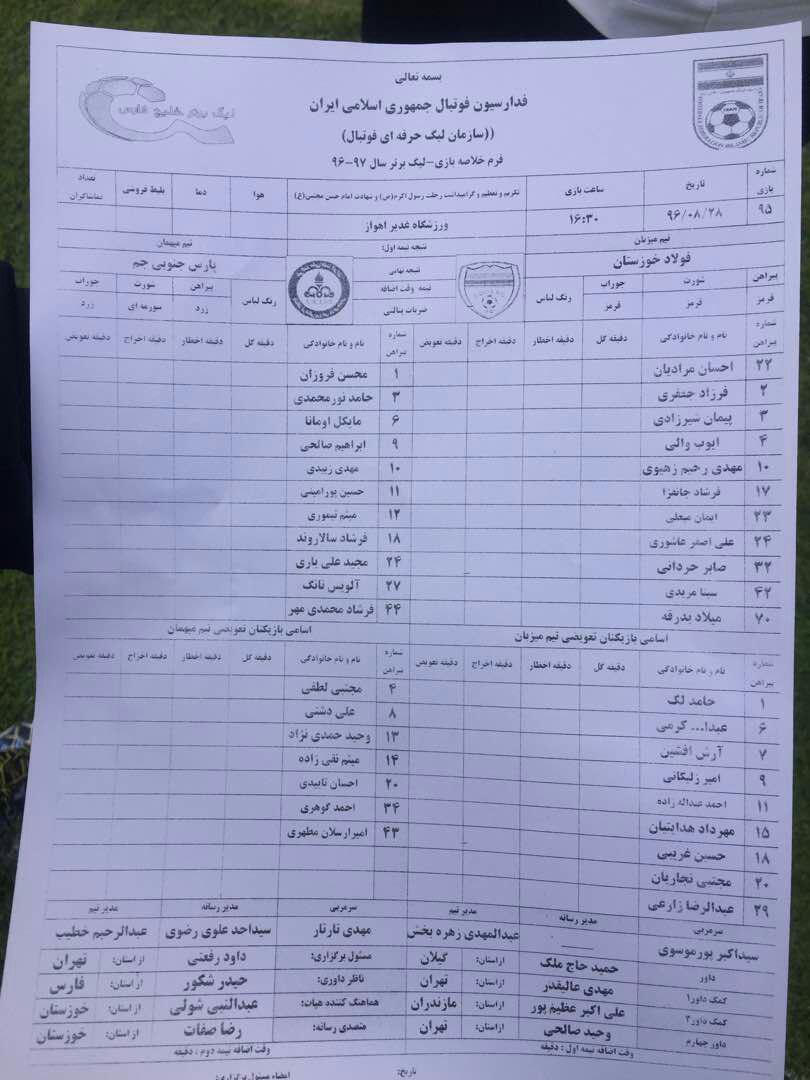 بسمه تعالی
فدارسیون فوتبال جمهوری اسلامی ایران
((سازمان لیگ حرفه ای فوتبال)
فرم خلاصه بازی-لیگ برتر سال ۹۷-۹۶
لیگ برتر خلیج فارس
شماره بازی تاریخ ساعت بازی تکریم و تعظیم و گرامیداشت رحلت رسول اکرم(ص) و شهادت امام حسن مجتبی(ع) هوا دما بلیط فروشی تعداد تماشاگران
۹۵ ۹۶/۰۸/۲۸ ۱۶:۳۰ ورزشگاه غدیر اهواز
تیم میزبان نتیجه نیمه اول: تیم میهمان
فولاد خوزستان نتیجه نهایی پارس جنوبی جم
پیراهن شورت جوراب رنگ لباس نیمه وقت اضافه رنگ لباس پیراهن شورت جوراب
قرمز قرمز قرمز ضربات پنالتی زرد سورمه ای زرد
شماره پیراهن نام و نام خانوادگی دقیقه گل دقیقه اخطار دقیقه اخراج دقیقه تعویض شماره پیراهن نام و نام خانوادگی دقیقه گل دقیقه اخطار دقیقه اخراج دقیقه تعویض
۲۲ احسان مرادیان ۱ محسن فروزان
۲ فرزاد جعفری ۳ حامد نورمحمدی
۳ پیمان شیرزادی ۶ مایکل اومانا
۴ ایوب والی ۹ ابراهیم صالحی
۱۰ مهدی رحیم زهیوی ۱۰ مهدی زبیدی
۱۷ فرشاد جانفزا ۱۱ حسین پورامینی
۲۳ ایمان مبعلی ۱۲ میثم تیموری
۲۴ علی اصغر عاشوری ۱۸ فرشاد سالاروند
۳۲ صابر حردانی ۲۴ مجید علی یاری
۴۲ سینا مریدی ۲۷ آلویس نانک
۷۰ میلاد بدرقه ۴۴ فرشاد محمدی مهر
اسامی بازیکنان تعویضی تیم میزبان اسامی بازیکنان تعویضی تیم میهمان
شماره پیراهن نام و نام خانوادگی دقیقه گل دقیقه اخطار دقیقه اخراج دقیقه تعویض شماره پیراهن نام و نام خانوادگی دقیقه گل دقیقه اخطار دقیقه اخراج دقیقه تعویض
۱ حامد لک ۴ مجتبی لطفی
۶ عبدا... کرمی ۸ علی دشتی
۷ آرش افشین ۱۳ وحید حمدی نژاد
۹ امیر زلیکانی ۱۴ میثم نقی زاده
۱۱ احمد عبداله زاده ۲۰ احسان تاییدی
۱۵ مهرداد هدایتیان ۳۴ احمد گوهری
۱۸ حسین غریبی ۴۳ امیرارسلان مطهری
۲۰ مجتبی نجاریان
۲۹ عبدالرضا زارعی
سرمربی مدیر رسانه مدیر تیم سرمربی مدیر رسانه مدیر تیم
سیداکبر پورموسوی عبدالمهدی زهره بخش مهدی تارتار سیداحد علوی رضوی عبدالرحیم خطیب
داور حمید حاج ملک از استان: گیلان مسئول برگزاری: داود رفعتی از استان: تهران
کمک داور۱ مهدی عالیقدر از استان: تهران ناظر داوری: حیدر شکور از استان: فارس
کمک داور۲ علی اکبر عظیم پور از استان: مازندران هماهنگ کننده هیات: عبدالنبی شولی از استان: خوزستان
داور چهارم وحید صالحی از استان: تهران متصدی رسانه: رضا صفات از استان: خوزستان
وقت اضافه نیمه اول : دقیقه وقت اضافه نیمه دوم : دقیقه
تاریخ: امضاء مسئول برگزاری: